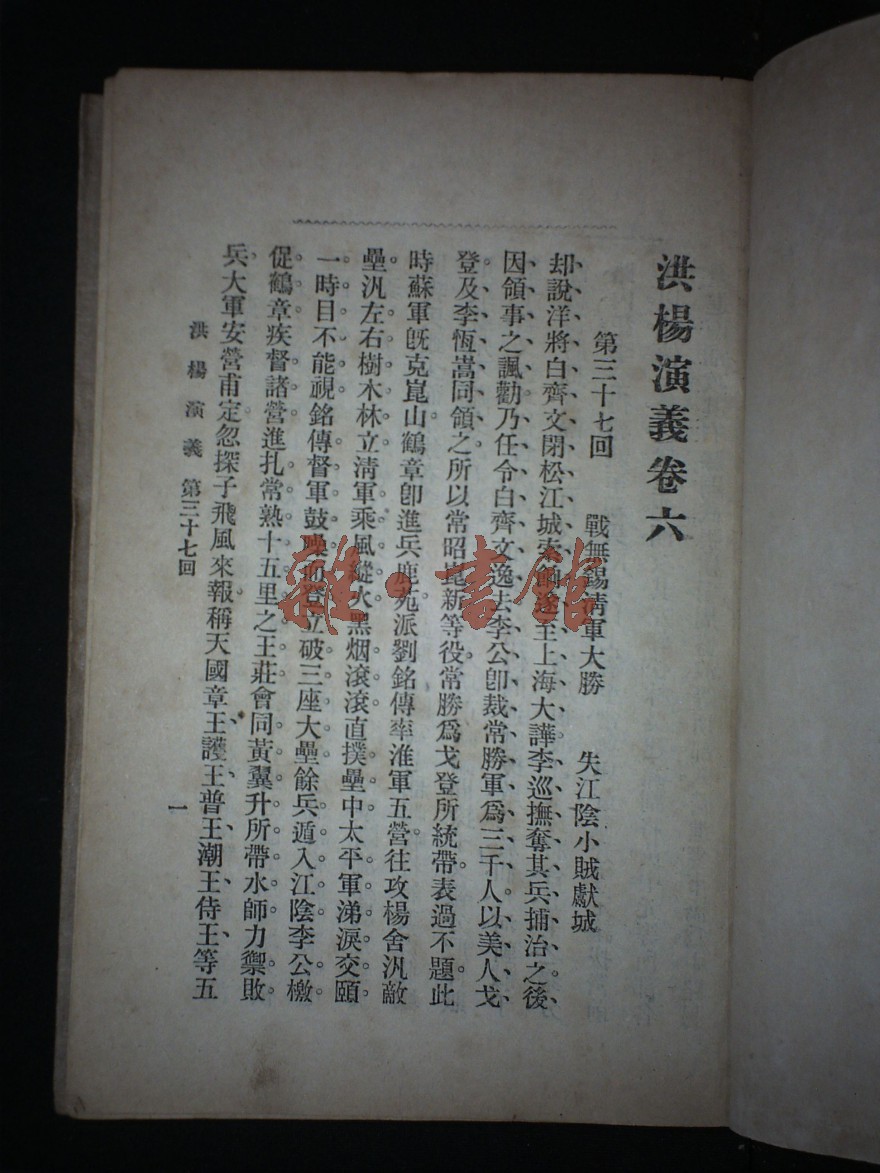 洪楊演義卷六
第三十七回　戰無錫淸軍大勝　失江陰小賊獻城
却說洋將白齊文閉松江城索餉遂至上海大譁李巡撫奪其兵捕治之後
因領事之諷勸乃任令白齊文逸去李公卽裁常勝軍爲三千人以美人戈
登及李恆嵩同領之所以常昭崑新等役常勝爲戈登所統帶表過不題此
時蘇軍旣克崑山鶴章卽進兵鹿苑派劉銘傳率淮軍五營往攻楊舍汛敵
壘汛左右樹木林立淸軍乘風縱火黑烟滾滾直撲壘中太平軍涕淚交頤
一時目不能視銘傳督軍鼓噪而登立破三座大壘餘兵遁入江陰李公檄
促鶴章疾督諸營進扎常熟十五里之王莊會同黃翼升所帶水師力禦敗
兵大軍安營甫定忽探子飛風來報稱天國章王護王普王潮王侍王等五
洪楊演義　第三十七回
一
雜·書館